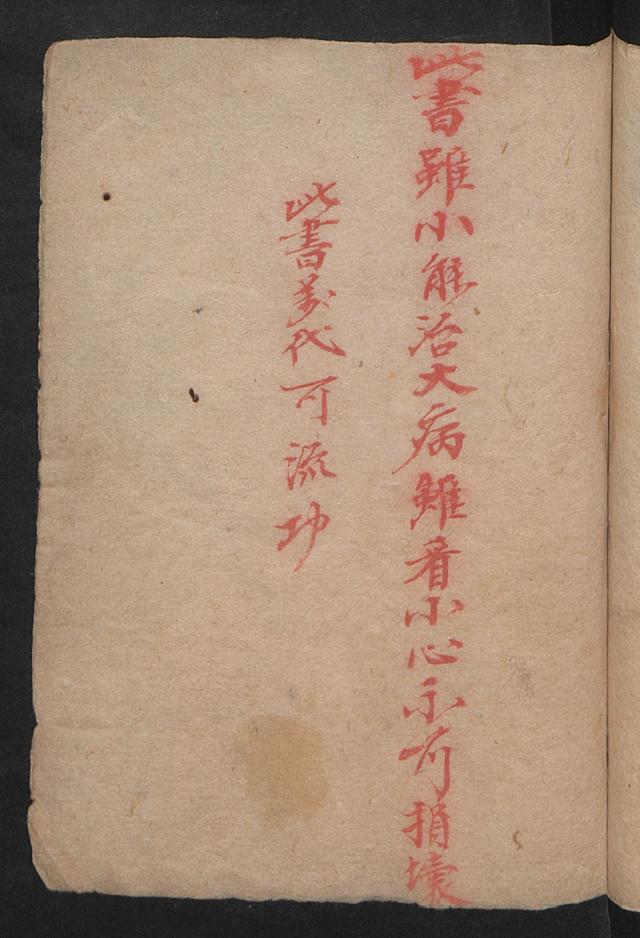 此書雖小能治大病雖看小心不可損壞
此書萬代可流功